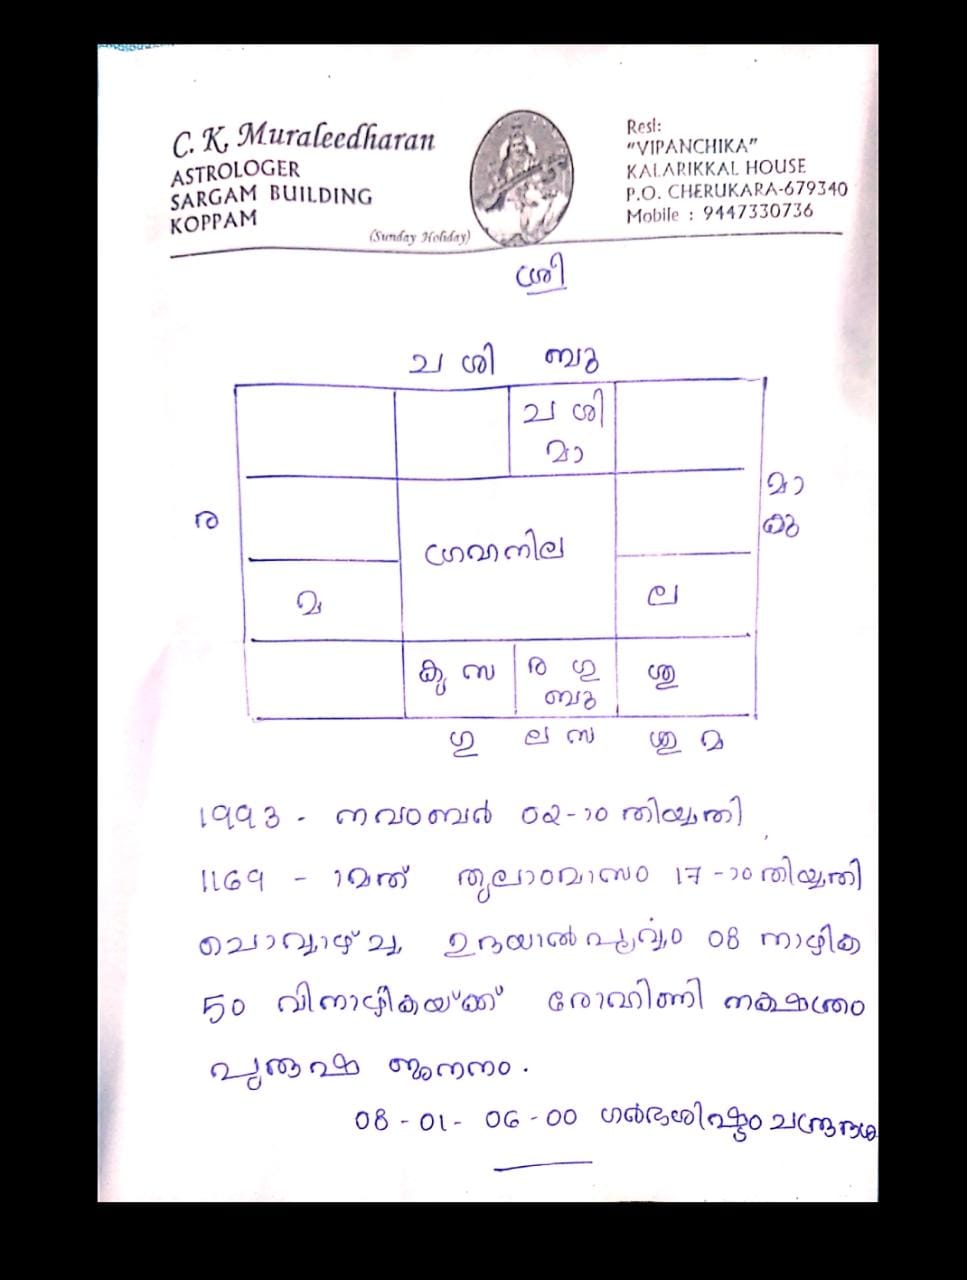 C. K. Muraleedharan
ASTROLOGER
SARGAM BUILDING
KOPPAM
(Sunday Holiday)
Resi:
"VIPANCHIKA"
KALARIKKAL HOUSE
P.O. CHERUKARA-679340
Mobile : 9447330736
ശ്രീ
ച ശി ബു
ച ശി
മാ
ര
മാ
കു
ഗ്രഹനില
മ
ല
കു സ
ര ഗു
ബു
ശു
ഗു ല സ ശു മ
1993 - നവംബർ 02-ാം തിയ്യതി
1169 - ാമത് തുലാംമാസം 17-ാം തിയ്യതി
ചൊവ്വാഴ്ച്ച ഉദയാൽപൂർവ്വം 08 നാഴിക
50 വിനാഴികയ്ക്ക് രോഹിണി നക്ഷത്രം
പുരുഷ ജനനം.
08 - 01 - 06 - 00 ഗർഭശിഷ്ടം ചന്ദ്രദശ